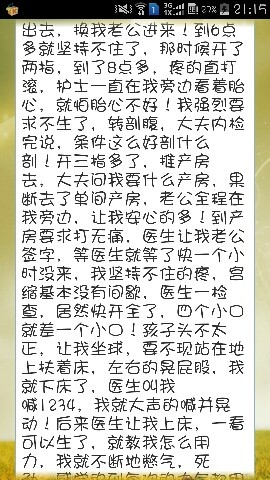 21:15
出去，换我老公进来！到6点
多就坚持不住了，那时候开了
两指，到了8点多，疼的直打
滚，护士一直在我旁边看着胎
心，就怕胎心不好！我强烈要
求不生了，转剖腹，大夫内检
完说，条件这么好剖什么
剖！开三指多了，推产房
去，大夫问我要什么产房，果
断去了单间产房，老公全程在
我旁边，让我安心的多！到产
房要求打无痛，医生让我老公
签字，等医生就等了快一个小
时没来，我坚持不住的疼，宫
缩基本没有间歇，医生一检
查，居然快开全了，四个小口
就差一个小口！孩子头不太
正，让我坐球，要不现站在地
上扶着床，左右的晃屁股，我
就下床了，医生叫我
喊1234，我就大声的喊并晃
动！后来医生让我上床，一看
可以生了，就教我怎么用
力，我就不断地憋气，死